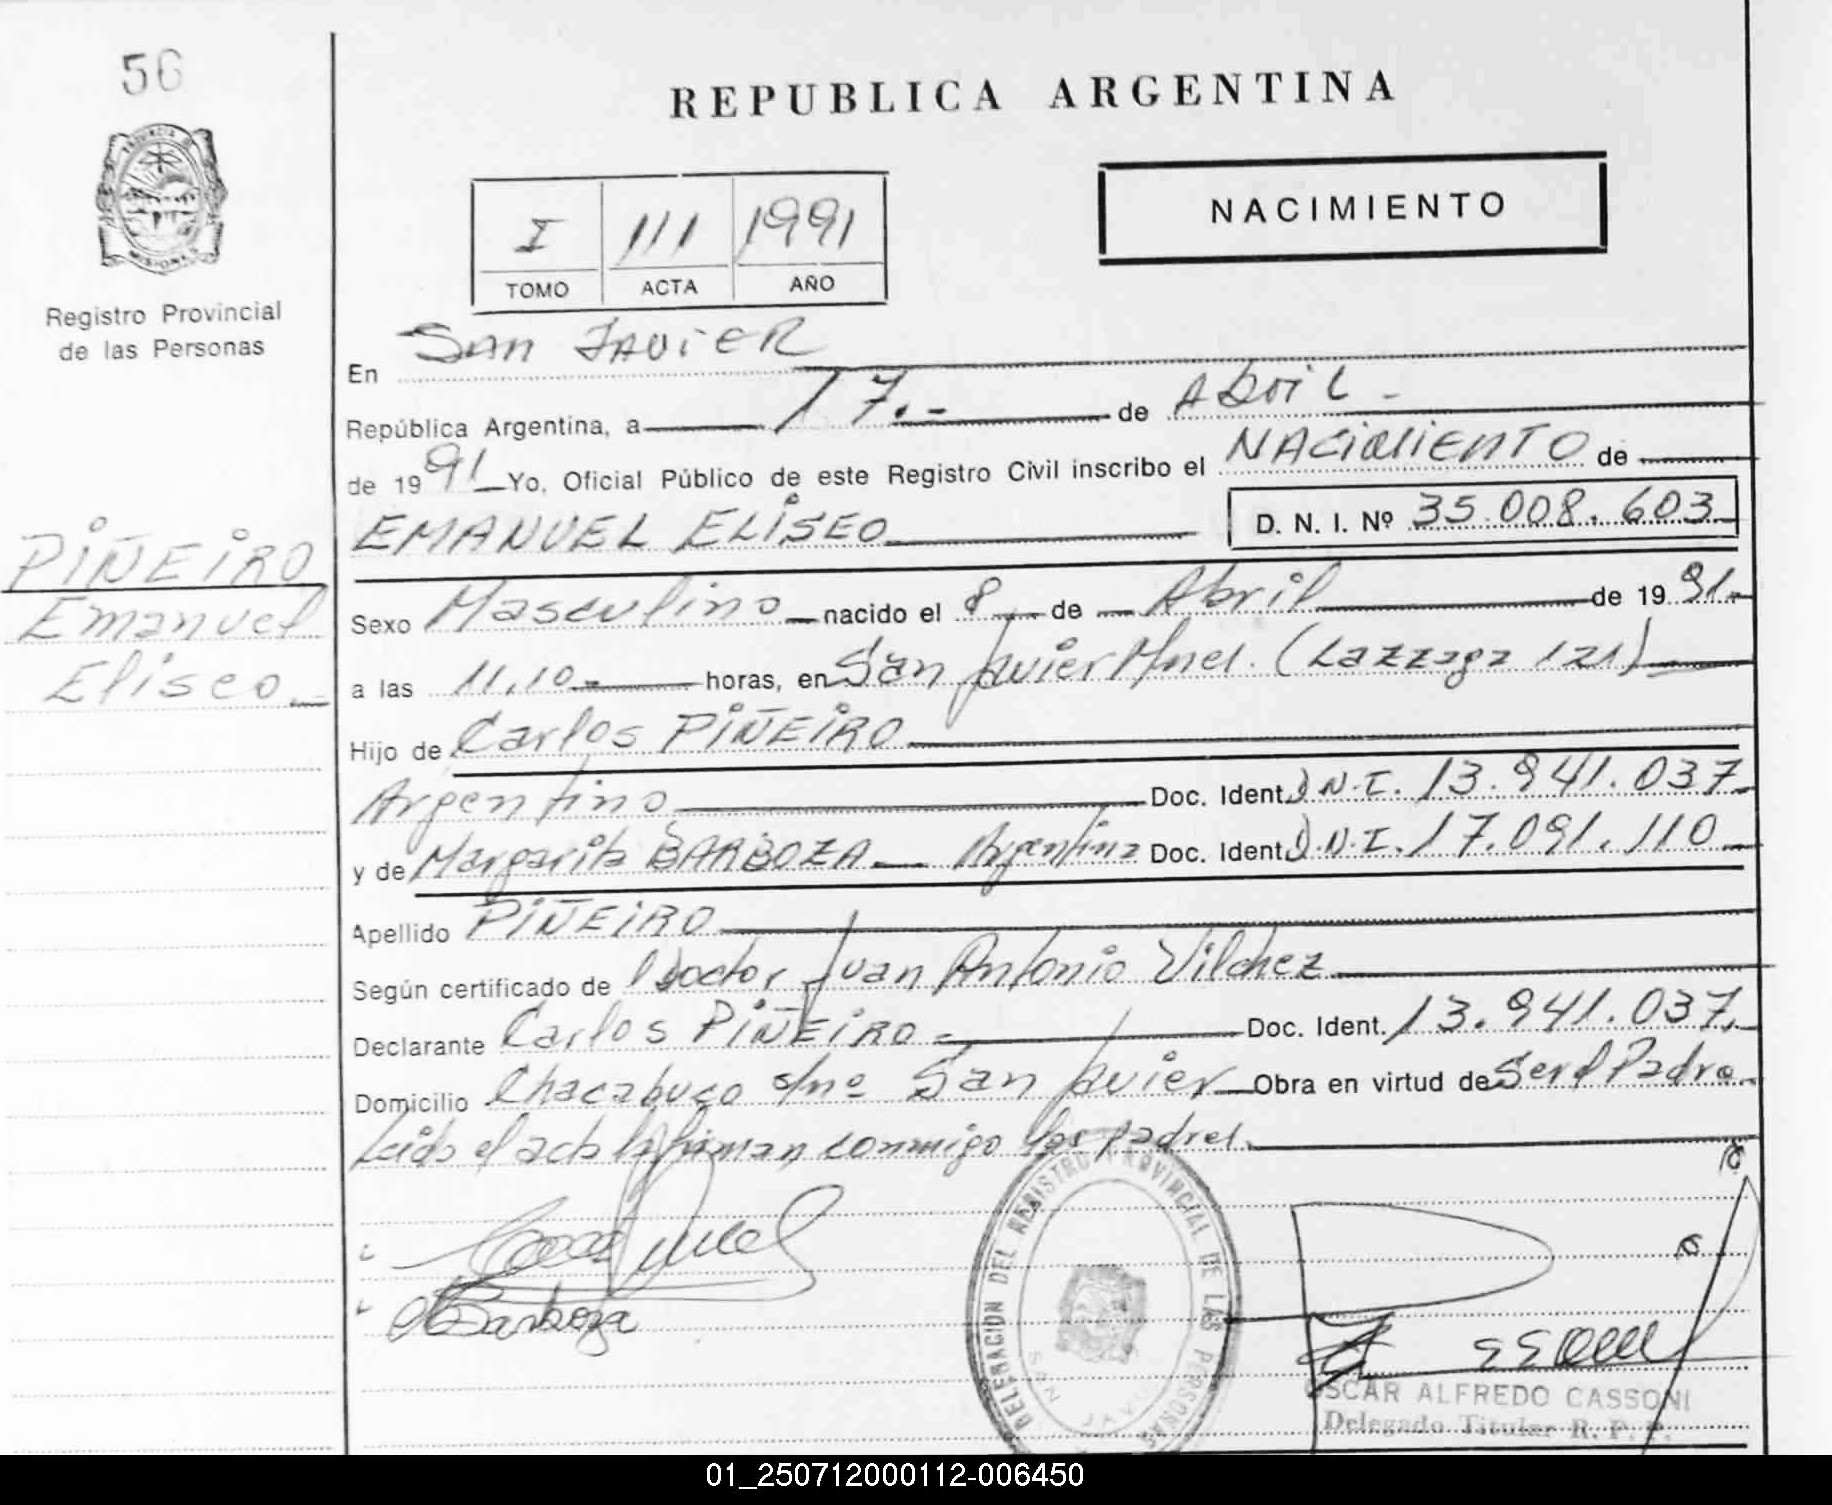 56
REPUBLICA ARGENTINA
PROVINCIA DE
MISIONES
Registro Provincial
de las Personas
NACIMIENTO
I 111 1991
TOMO ACTA AÑO
En SAN JAVIER
República Argentina, a 17.- de Abril -
de 1991 Yo, Oficial Público de este Registro Civil inscribo el NACIMIENTO de
EMANUEL ELISEO D. N. I. Nº 35.008.603
PIÑEIRO
Emanuel
Eliseo
Sexo Masculino nacido el 8 de Abril de 1991.
a las 11,10 horas, en San Javier Mnes. (Lazzaga 121)
Hijo de Carlos PIÑEIRO
Argentino Doc. Ident. D.N.I. 13.941.037
y de Margarita BARBOZA Argentina Doc. Ident. D.N.I. 17.091.110
Apellido PIÑEIRO
Según certificado de Doctor Juan Antonio Vilchez
Declarante Carlos PIÑEIRO Doc. Ident. 13.941.037.
Domicilio Chacabuco s/nº San Javier Obra en virtud de Ser el Padre.
Leído el acta la firman conmigo los padres.
DELEGACION DEL REGISTRO PROVINCIAL DE LAS PERSONAS
SAN JAVI
Barboza
OSCAR ALFREDO CASSONI
Delegado Titular R. P. P.
01_250712000112-006450